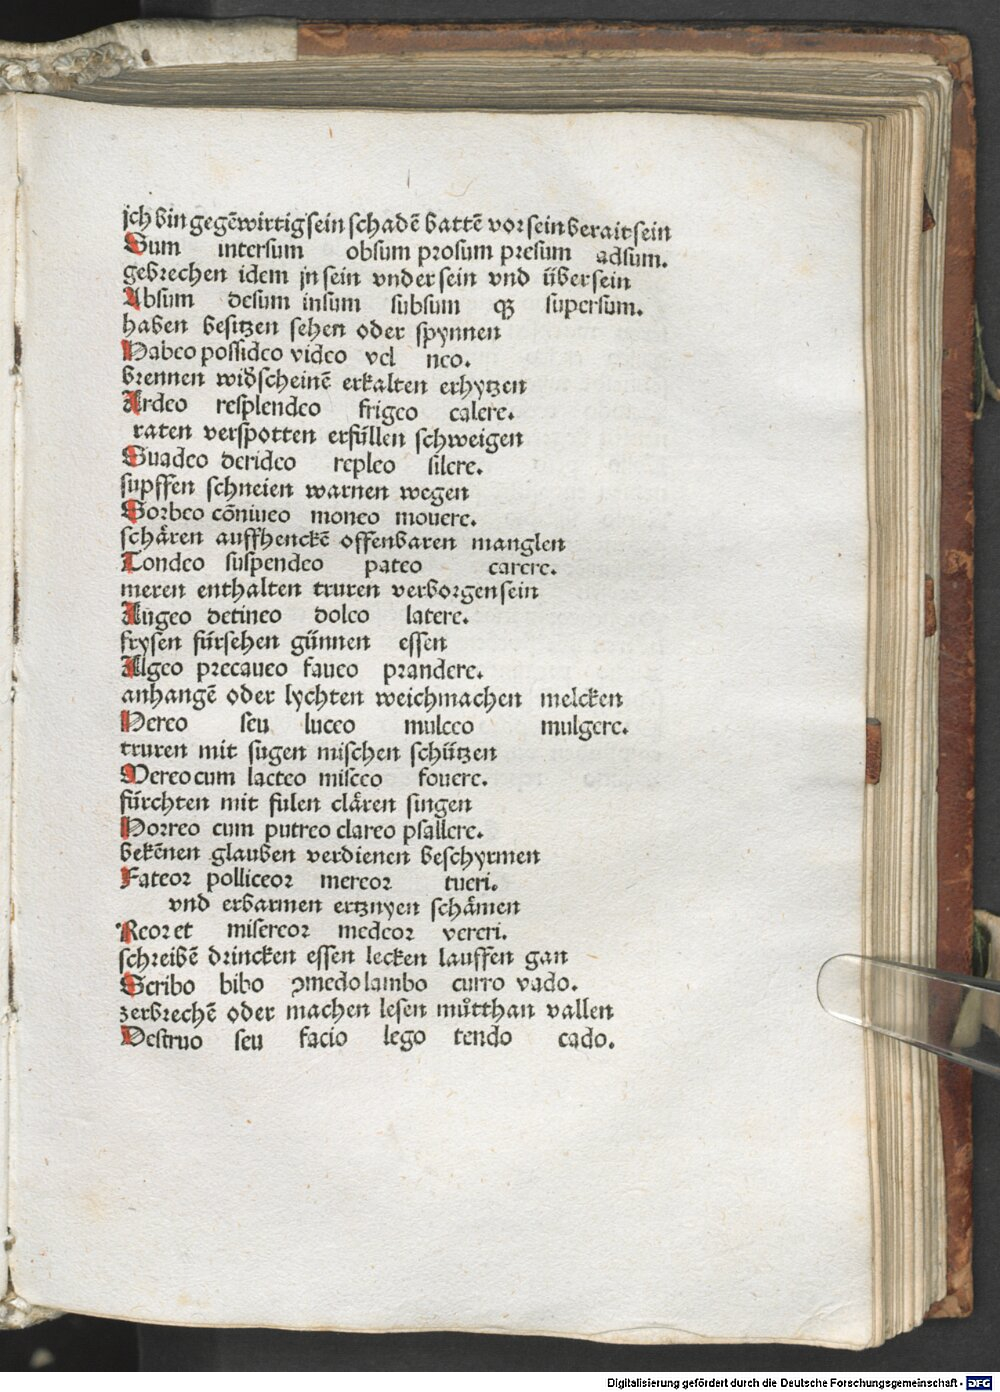 jch bin gegēwirtig sein schadē battē vor sein berait sein
Sum intersum obsum prosum presum adsum.
gebrechen idem jn sein vnder sein vnd über sein
Absum desum insum subsum qȝ supersum.
haben besitzen sehen oder spynnen
Habeo possideo video vel neo.
brennen wiďscheinē erkalten erhytzen
Ardeo resplendeo frigeo calere.
raten verspotten erfüllen schweigen
Suadeo derideo repleo silere.
supffen schneien warnen wegen
Sorbeo cōniueo moneo mouere.
schären auffhenckē offenbaren manglen
Tondeo suspendeo pateo carere.
meren enthalten truren verborgen sein
Augeo detineo doleo latere.
frysen fürsehen günnen essen
Algeo precaueo faueo prandere.
anhangē oder lychten weichmachen melcken
Hereo seu luceo mulceo mulgere.
truren mit sugen mischen schützen
Mereo cum lacteo misceo fouere.
fürchten mit fulen clären singen
Horreo cum putreo clareo psallere.
bekēnen glauben verdienen beschyrmen
Fateor polliceor mereor tueri.
vnd erbarmen ertznyen schämen
Reor et misereor medeor vereri.
schreibē drincken essen lecken lauffen gan
Scribo bibo ꝯmedo lambo curro vado.
zerbrechē oder machen lesen muͦtthan vallen
Destruo seu facio lego tendo cado.
Digitalisierung gefördert durch die Deutsche Forschungsgemeinschaft - DFG